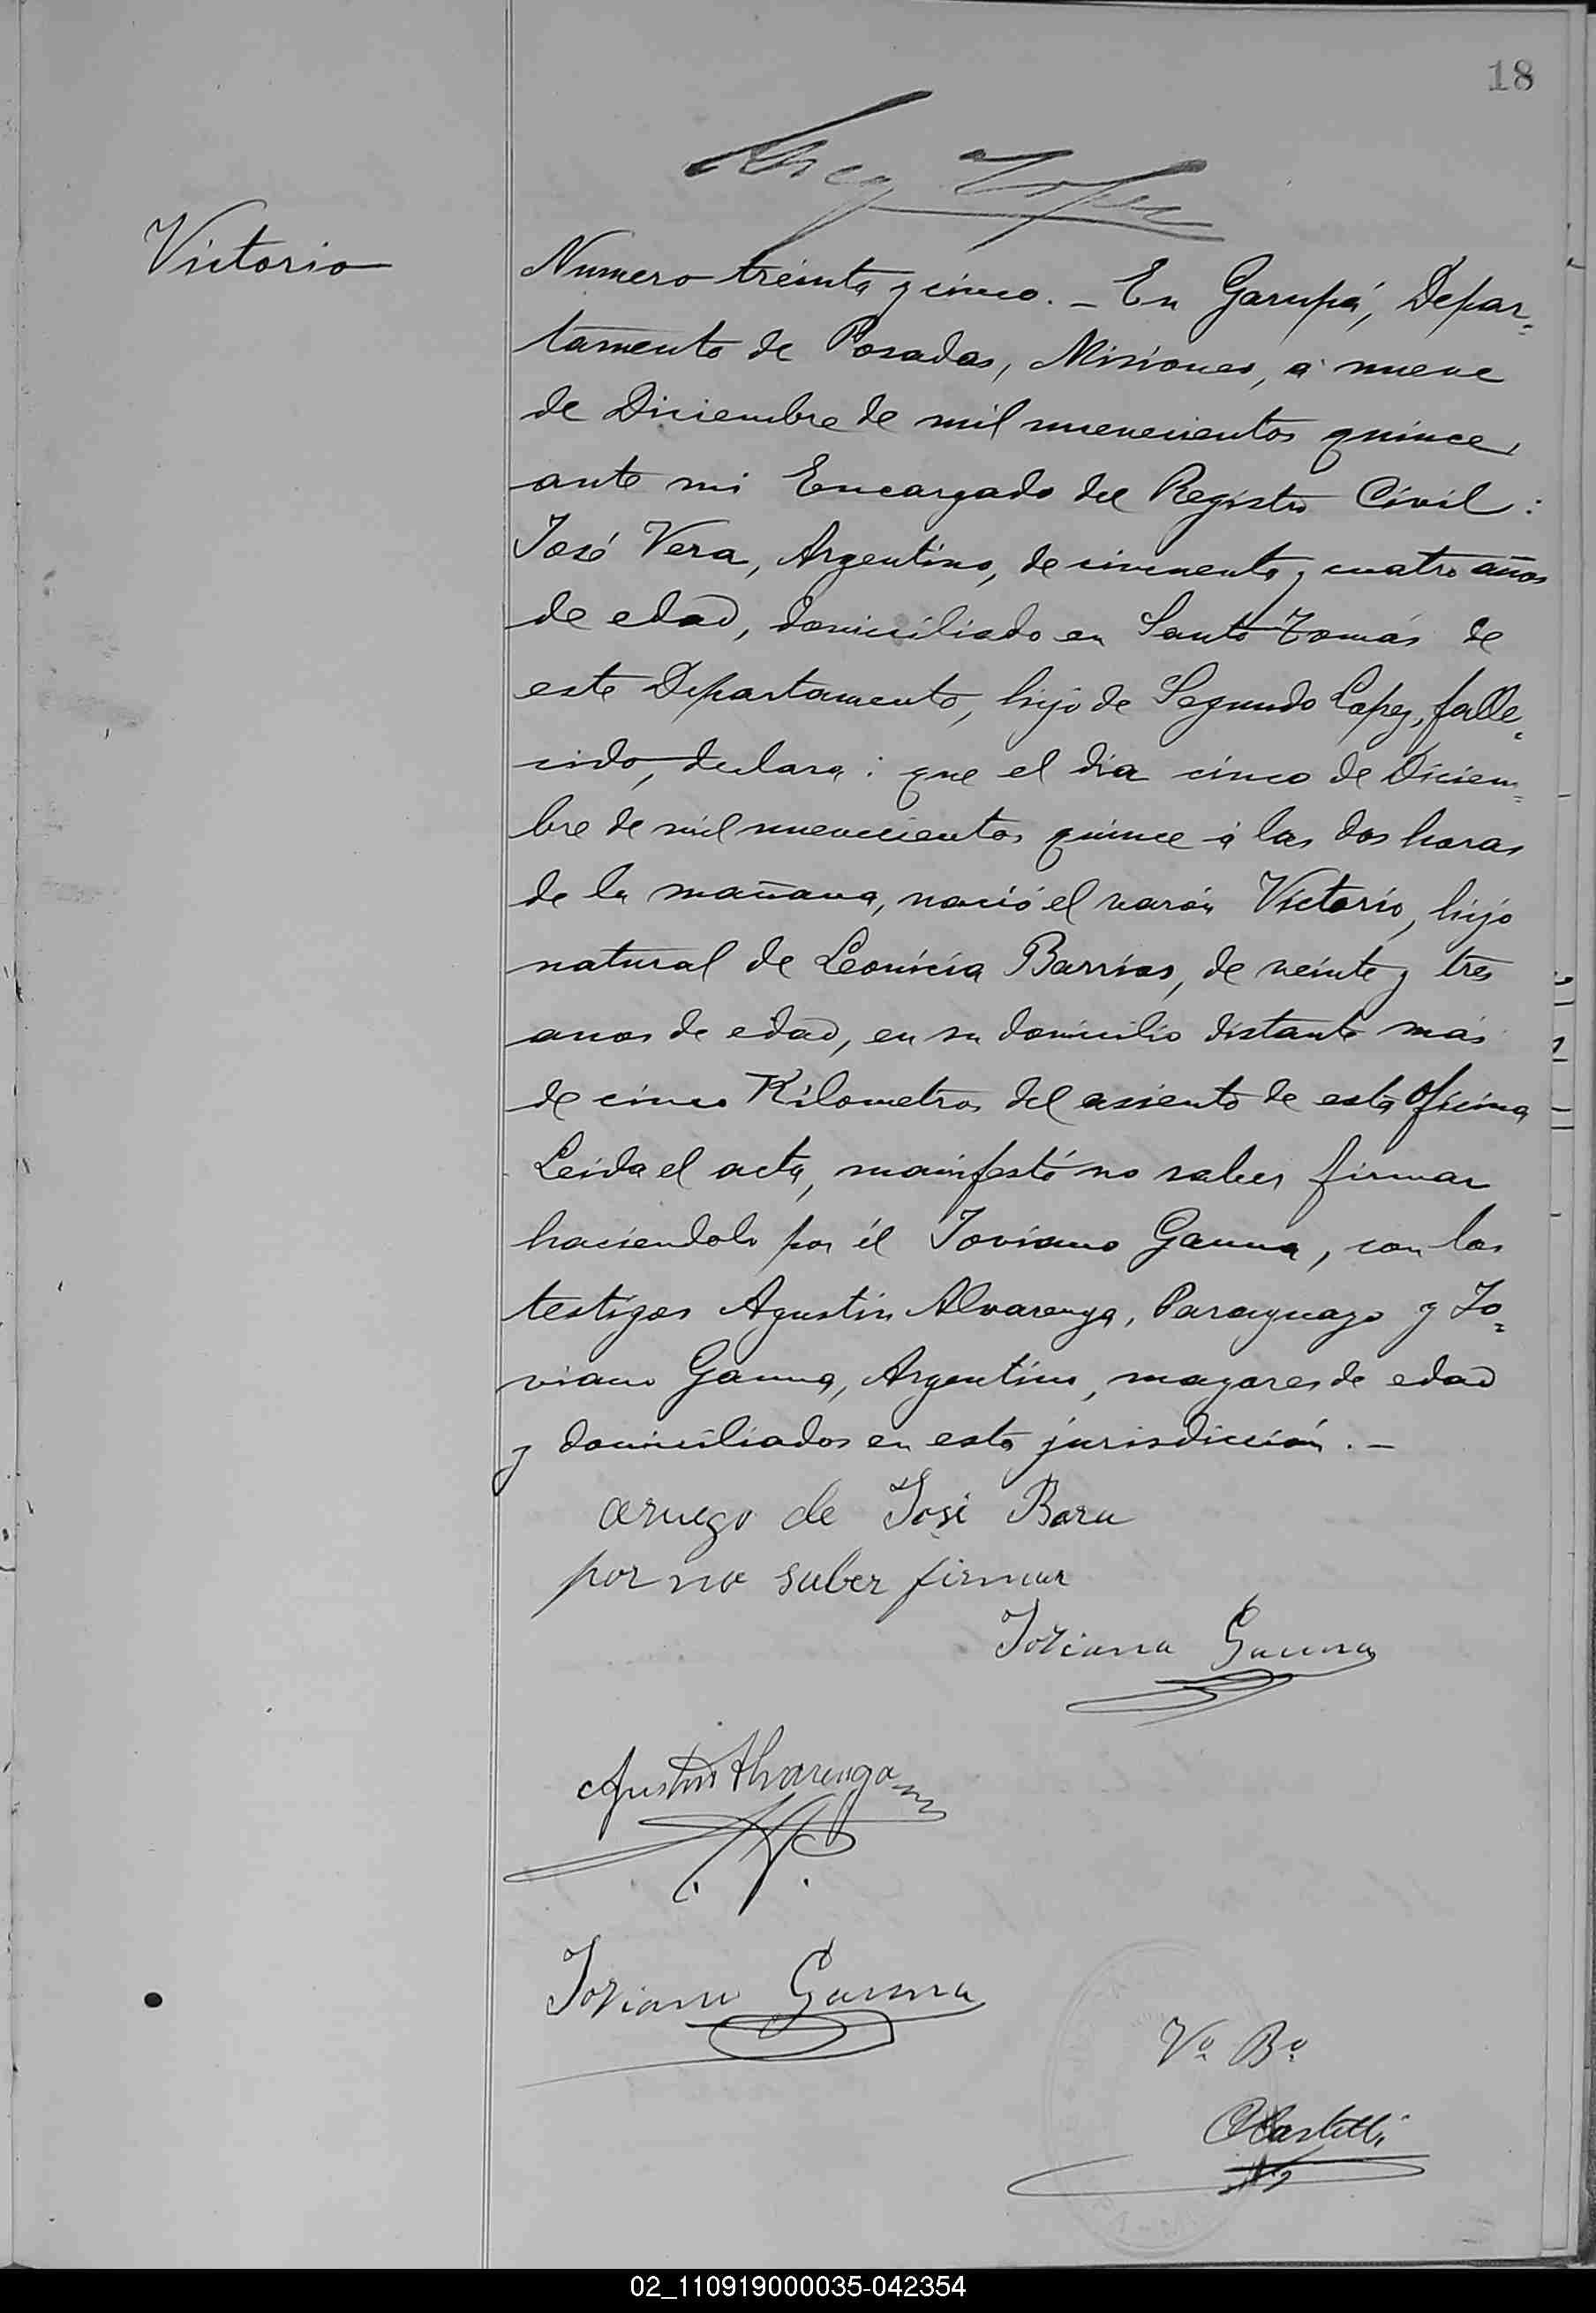 18
Victorio
Numero treinta y cinco. - En Garupá, Depar=
tamento de Posadas, Misiones, á nueve
de Diciembre de mil nuevecientos quince,
ante mi Encargado del Registro Civil:
José Vera, Argentino, de cincuenta y cuatro años
de edad, domiciliado en Santo Tomás de
este Departamento, hijo de Segundo Lopez, falle=
cido, declara: que el dia cinco de Diciem=
bre de mil nuevecientos quince á las dos horas
de la mañana, nació el varón Victorio, hijo
natural de Leonicia Barrios, de veinte y tres
anos de edad, en su domicilio distante más
de cinco Kilometros del asiento de esta Oficina
Leida el acta, manifestó no saber firmar
haciendolo por él Joviano Gauna, con los
testigos Agustin Alvarenga, Paraguayo y Jo=
viano Gauna, Argentino, mayores de edad
y domiciliados en esta jurisdicción. -
aruego de José Bera
por no saber firmar
Joviano Gauna
Agustin Alvarenga
Joviano Gauna
Vº Bº
Castelli
02_110919000035-042354